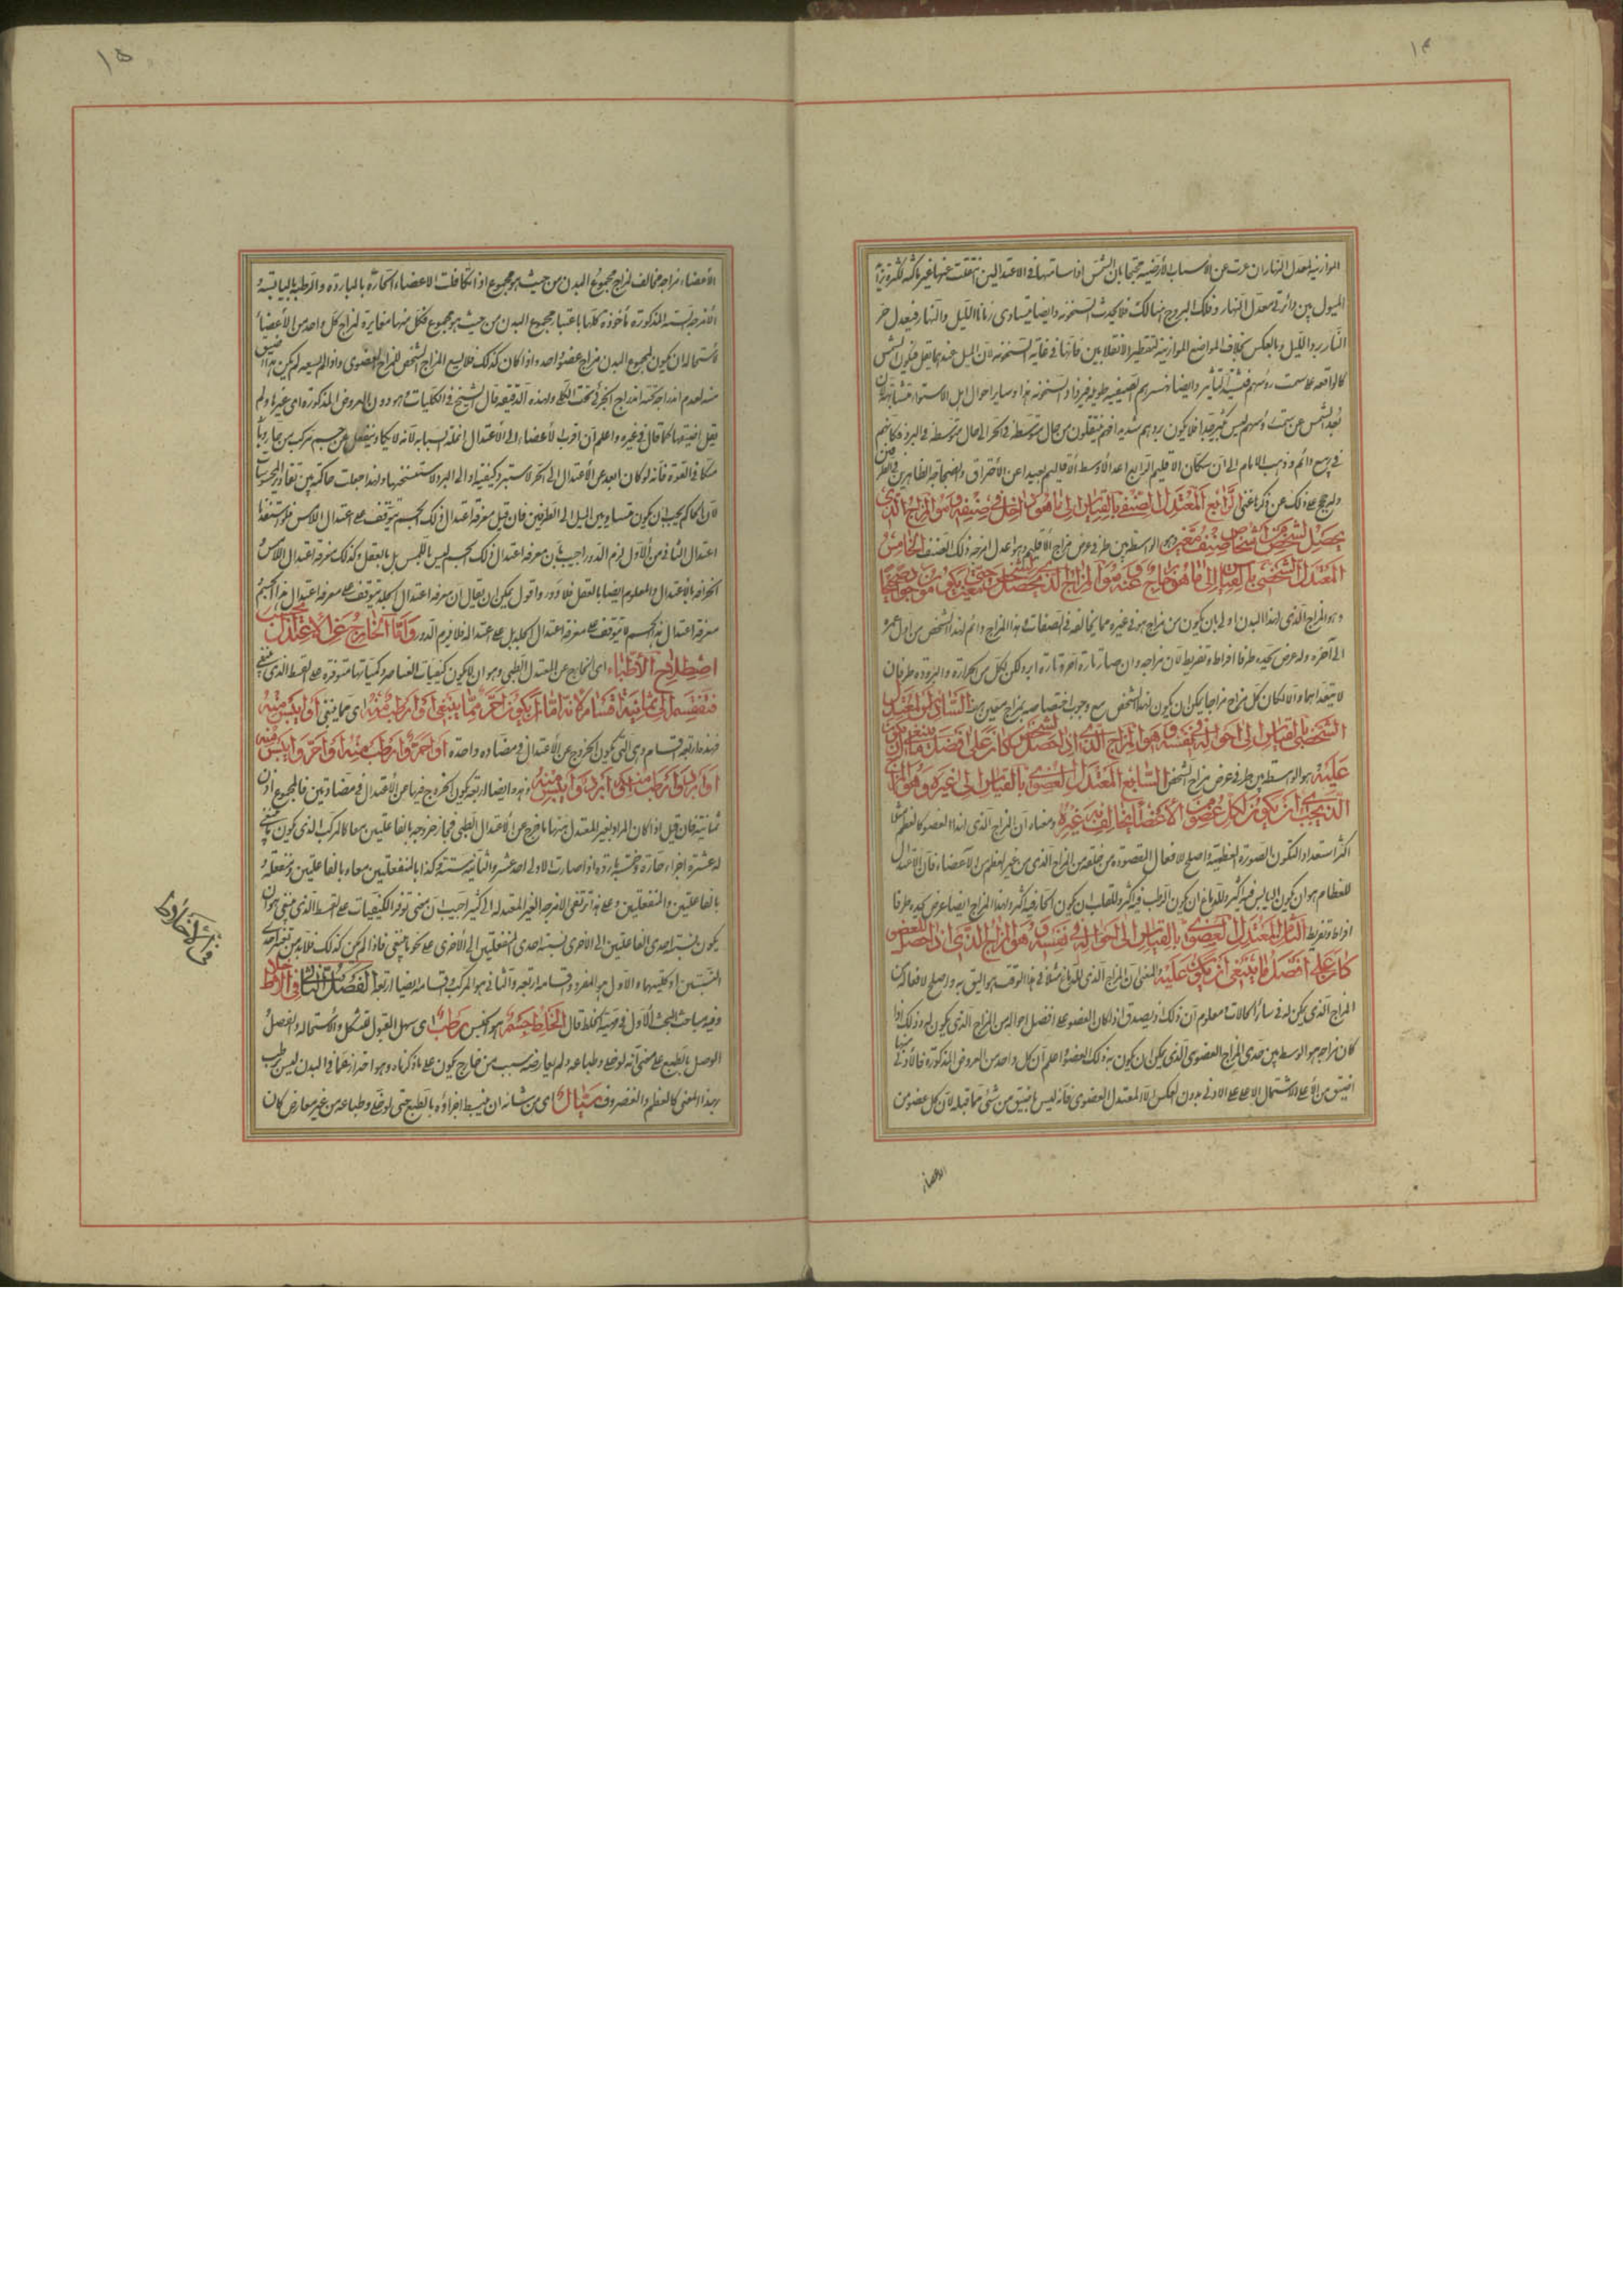 ١٤
الموازنة لمعدل النهار ان عريت عن الاسباب الارضية محتجا بان الشمس اذا سامتها في الاعتدالين تنتقل عنها غير ماكثة لكثرة تزايد
الميول بين دائرتي معدل النهار وفلك البروج هنالك فلا يحدث السخونة وايضا يتساوى زمانا الليل والنهار فيعدل حر
النهار برد الليل وبالعكس بخلاف المواضع الموازية لنقطتي الانقلابين فانها في غاية السخونة لان الميل عندهما يقل فيكون الشمس
كالواقفة على سمت رؤسهم فيشتد تأثير وايضا نهارهم الصيفية طويلة فيزداد السخونة هذا وسائر احوال اهل الاستواء متشابهة لان
بعد الشمس عن سمت رؤسهم ليس كثير جدا فلا يكون بردهم شديدا فهم ينتقلون من حال متوسطة في الحر الى حال متوسطة في البرد فكانهم
في ربيع دائم وذهب الامام الى ان سكان الاقليم الرابع اعدل لاوسط الاقاليم بعيدا عن الاحتراق والفجاجة الظاهرين في الطرفين
ولنرجع الى ذلك عن ذكرنا اعني الرابع المعتدل الصنفي بالقياس الى ما هو داخل في صنفه وهو المزاج الذي
يحصل لشخص من اشخاص صنف معين وهو الواسطة بين طرفي عرض مزاج الاقليم وهو اعدل امزجة ذلك الصنف الخامس
المعتدل الشخصي بالقياس الى ما هو خارج عنه وهو المزاج الذي يحصل لشخص معين حتى يكون موجودا صحيحا
وهو المزاج الذي لهذا البدن اولى بان يكون من مزاج هو في غيره مما يخالفه في الصفات في هذا المزاج دائم لهذا الشخص من اول عمره
الى آخره وله عرض يحيده طرفا افراط وتفريط لان مزاجه وان صار تارة احر وتارة ابرد لكن لكل من الحرارة والبرودة طرفان
لا يتعداهما والا لكان كل مزاج مزاجا يمكن ان يكون لهذا الشخص مع وجوب اختصاصه بمزاج معين السادس المعتدل
الشخصي بالقياس الى احواله في نفسه وهو المزاج الذي اذا حصل لشخص كان على افضل ما ينبغي ان يكون
عليه هو الواسطة بين طرفي عرض مزاج الشخص السابع المعتدل العضوي بالقياس الى غيره وهو المزاج
الذي يجب ان يكون لكل عضو من الاعضاء يخالف به غيره ومعناه ان المزاج الذي لهذا العضو كالعظم مثلا
اكثر استعدادا لتكون الصورة العظمية واصلح لافعال المقصودة من خلقه من المزاج الذي من غير العظم من الاعضاء فان الاعتدال
للعظام هو ان يكون اليابس فيه اكثر وللدماغ ان يكون الرطب فيه اكثر وللقلب ان يكون الحار فيه اكثر ولهذا المزاج ايضا عرض يحيده طرفا
افراط وتفريط الثامن المعتدل العضوي بالقياس الى احواله في نفسه وهو المزاج الذي اذا حصل للعضو
كان على افضل ما ينبغي ان يكون عليه والمعنى ان المزاج الذي للدماغ مثلا في هذا الوقت هو اليق به واصلح لافعاله من
المزاج الذي يمكن له في سائر الحالات معلوم ان ذلك انما يصدق اذا كان العضو على افضل احواله من المزاج الذي يكون له وذلك اذا
كان مزاجه هو الوسط بين حدي المزاج العضوي الذي يمكن ان يكون به ذلك العضو واعلم ان كل واحد من العروض المذكورة فالادنى منها
اضيق من الاعلى لاشتمال الاعلى على الادنى بدون العكس الا المعتدل العضوي فانه ليس باضيق من شئ مما قبله لان لكل عضو من
الاعضاء
١٥
الأعضاء مزاجه مخالف لمزاج مجموع البدن من حيث هو مجموع اذا تكافات الاعضاء الحارة بالباردة والرطبة باليابسة
الامزجة الستة المذكورة مأخوذة كلها باعتبار مجموع البدن من حيث هو مجموع فكل منها مغايرة لمزاج كل واحد من الأعضاء
لاستحالة ان يكون لمجموع البدن مزاج عضو واحد واذا كان كذلك فلا يسع المزاج الشخصي المزاج العضوي واذا لم يسعه لم يكن هذا اضيق
منه لعدم اندراجه تحته اندراج الجزئي تحت الكلي ولهذه الدقيقة قال الشيخ في الكليات وهو دون العروض المذكورة اى غيرها ولم
يقل اضيقها كما قال في غيره واعلم ان اقرب الأعضاء الى الأعتدال انملة السبابة لانه لا يكاد ينفعل عن جسم مركب من حار وبارد
متكافي القوة فانه لو كان ابعد عن الأعتدال الى الحر لاستبرد كيفية او الى البرد لاستسخنها ولهذا جعلت حاكمة بين مقادير الملموسات
لان الحاكم يجب ان يكون متساوي الميل الى الطرفين فان قيل معرفة اعتدال ذلك الجسم يتوقف على اعتدال اللامس فلو استفدنا
اعتدال الثاني من الأول لزم الدور اجيب بان معرفة اعتدال ذلك الجسم ليس باللمس بل بالعقل وكذلك معرفة اعتدال اللامس
انحرافه الاعتدال والمعلوم ايضا بالعقل فلا دور واقول يمكن ان يقال ان معرفة اعتدال الجلد يتوقف على معرفة اعتدال هذا الجسم
معرفة اعتدال هذا الجسم لا يتوقف على معرفة اعتدال الجلد بل على اعتداله فلا يلزم الدور واما الخارج عن الاعتدال بحسب
اصطلاح الأطباء اى الخارج عن المعتدل الطبي وهو ان لا يكون كيفيات العناصر وكمياتها متوفرة على القسط الذي ينبغي
فتنقسم الى ثمانية اقسام لانه اما ان يكون احر مما ينبغي او ابرد او ارطب منه اى مما ينبغي او ايبس منه
فهذه اربعة اقسام وهي التي يكون الخروج عن الأعتدال في مضادة واحدة او احر وارطب منه او احر وايبس منه
او ابرد وارطب منه او ابرد وايبس منه وهذه ايضا اربعة يكون الخروج فيها عن الاعتدال في مضادتين فالمجموع اذن
ثمانية فان قيل اذا كان المراد بغير المعتدل ههنا ما خرج عن الاعتدال الطبي فجاز خروجه بالفاعلتين معا كالمركب الذي يكون ينبغي
له عشرة اجزاء حارة وخمسة باردة اذا صارت الاولى احد عشر والثانية ستة وكذا بالمنفعلتين معا وبالفاعلتين ومنفعلة
بالفاعلتين والمنفعلتين وعلى هذا ترتقي الامزجة الغير المعتدلة الى كثير اجيب ان معنى توفر الكيفيات على القسط الذي ينبغي هو ان
يكون نسبة احدى الفاعلتين الى الاخرى نسبة احدى المنفعلتين الى الأخرى على نحو ما ينبغي فاذا لم يكن كذلك فلا بد من تغير احدى
النسبتين او كليهما والاول هو المفرد واقسامه اربعة والثاني هو المركب واقسامه ايضا اربعة الفصل الثالث في الاخلاط
وفيه مباحث البحث الأول في مهية الخلط قال الخلط جسم هو كالجنس رطب اى سهل القبول للتشكل والاستحالة والفصل
الوصل بالطبع على معنى انه لو خلى وطباعه ولم يعارضه سبب من خارج يكون على ما ذكرناه وهو احتراز عما في البدن ليس برطب
بهذا المعنى كالعظم والغضروف سيال اى من شأنه ان ينبسط اجزاؤه بالطبع حتى لو خلى وطباعه من غير معارض كان
في الاخلاط